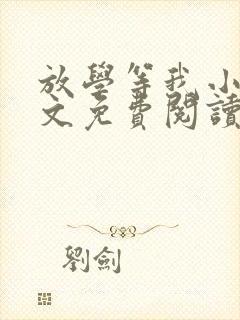 放學等我小
文免費閱讀
劉劍